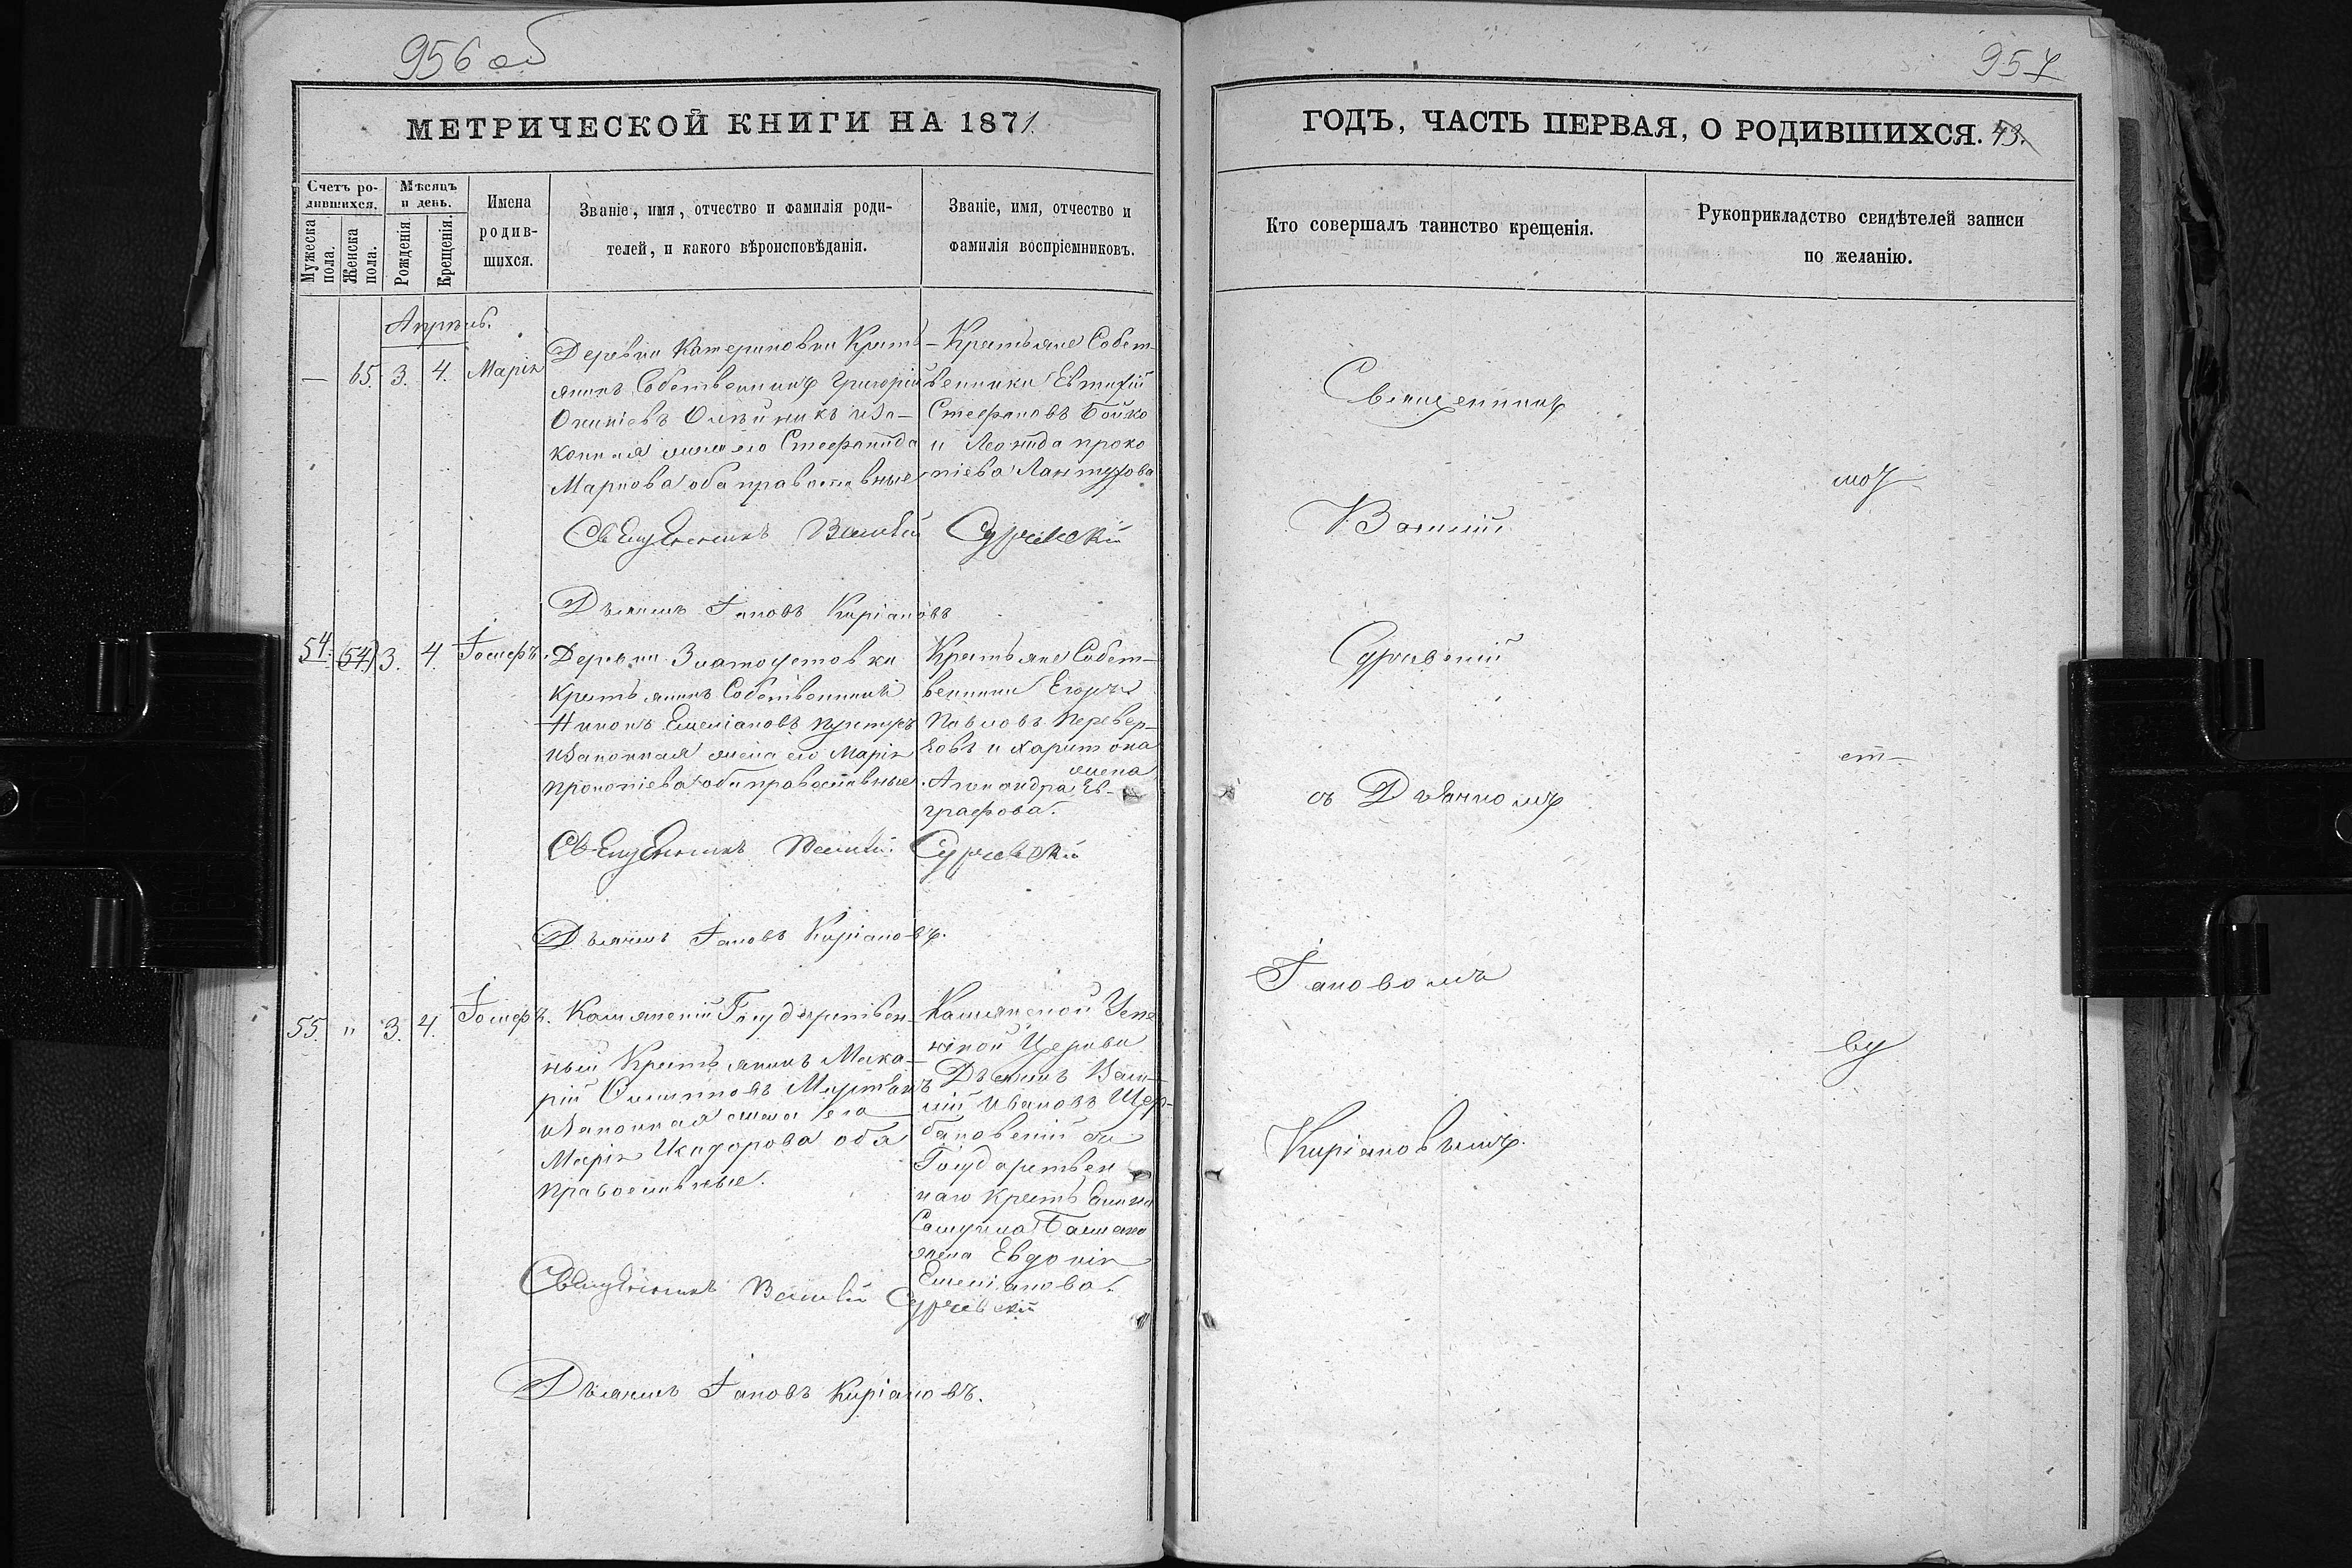 956 об
МЕТРИЧЕСКОЙ КНИГИ НА 1871.
Счетъ ро-
дившихся.
Мужеска пола.
Женска пола.
Мѣсяцъ и день.
Рожденія
Крещенія.
Имена родив-
шихся.
Званіе, имя, отчество и фамилія роди-
телей, и какого вѣроисповѣданія.
Званіе, имя, отчество и
фамилія воспріемниковъ.
Апрѣль.
— 65. 3. 4. Марія
Деревни Катериновки Кресть
янинъ Собственникъ Григорій
Олѣйникъ и За-
конная жена его Стефанида
Маркова оба православные
Крестьяне Собст-
венники Евтихій
Стефановъ Бойко
и Леонида Проко
піева
Священникъ Василій
Дьячекъ Іаковъ Киріановъ
54. (54) 3. 4. Іосифъ.
Деревни Златоустовки
Крестьянинъ Собственникъ
Никонъ Емеліановъ
и Законная жена его Марія
Прокопіева оба православные
Крестьяне Собст-
венники Егоръ
Павловъ Перевер-
и Харитона
жена
Александра Ев-
графова.
Священникъ Василій
Дьячекъ Іаковъ Киріановъ.
55. " 3. 4. Іосифъ.
Государствен-
ный Крестьянинъ Мака-
рій Филиповъ
и Законная жена его
Марія оба
православные.
Церкви
Дьячекъ Васи-
лій Ивановъ Щер-
баковскій и
Государствен
наго Крестьянина
жена Евдокія
Емеліанова.
Священникъ Василій
Дьячекъ Іаковъ Киріановъ.
957
ГОДЪ, ЧАСТЬ ПЕРВАЯ, О РОДИВШИХСЯ. 43.
Кто совершалъ таинство крещенія.
Рукоприкладство свидѣтелей записи
по желанію.
Священникъ
Василій
съ Дьячкомъ
Іаковомъ
Киріановымъ.